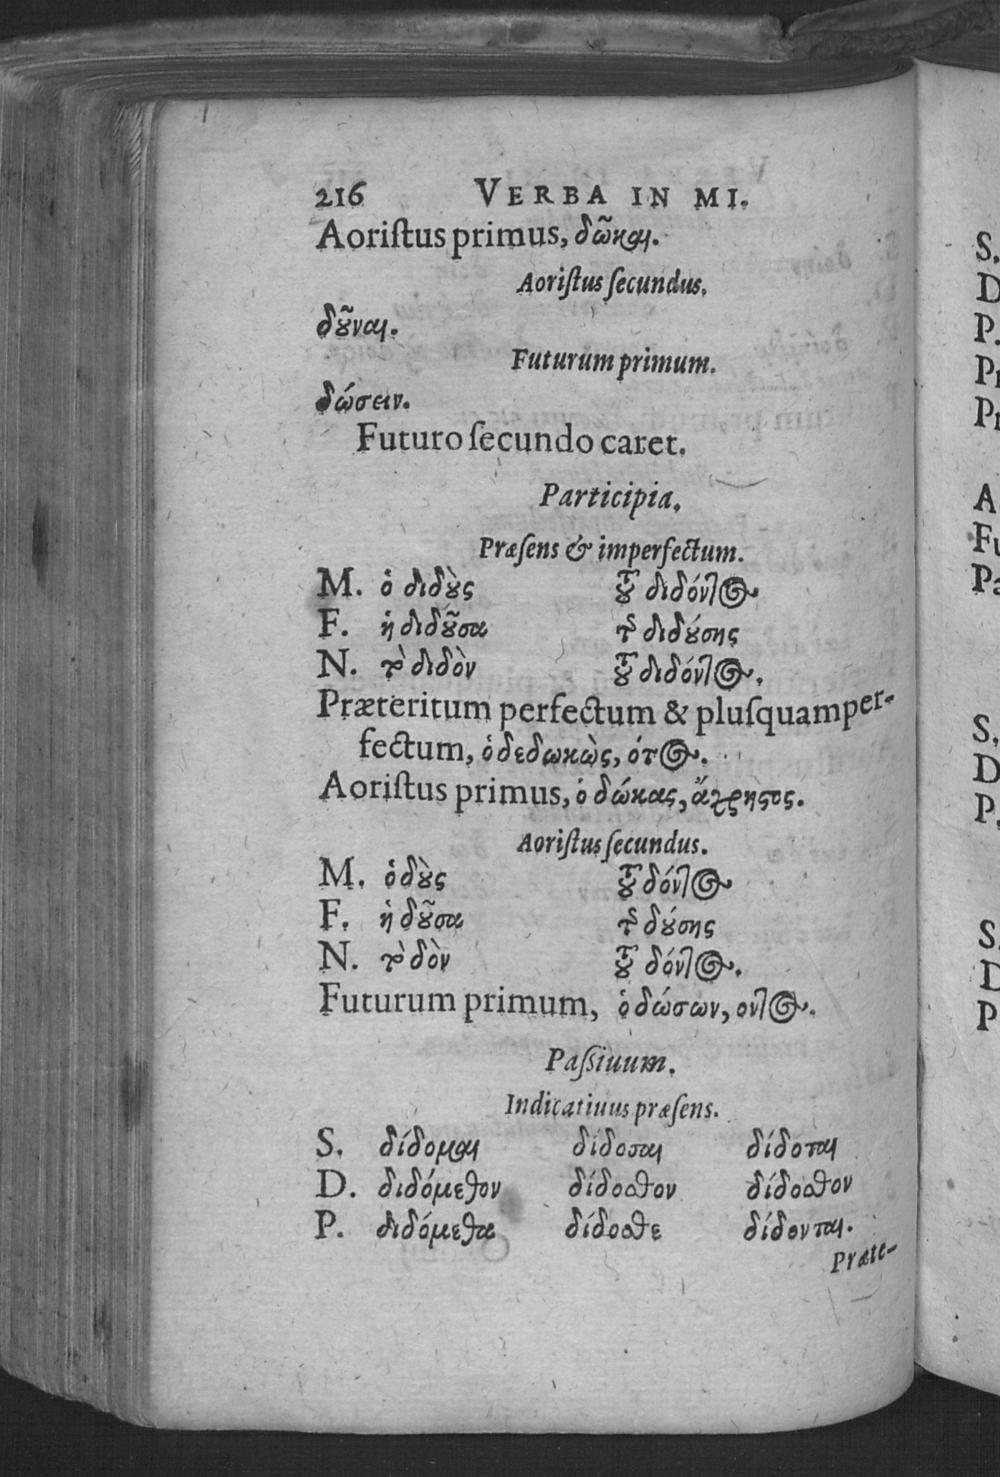 216 VERBA IN MI.
Aoriſtus primus, δῶκαι.
Aoriſtus ſecundus.
δοῦναι.
Futurum primum.
δώσειν.
Futuro ſecundo caret.
Participia.
Præſens & imperfectum.
M. ὁ διδοὺς τοῦ διδόντος
F. ἡ διδοῦσα τῆς διδούσης
N. τὸ διδὸν τοῦ διδόντος.
Præteritum perfectum & pluſquamper-
fectum, ὁ δεδωκὼς, ότος.
Aoriſtus primus, ὁ δώκας, ἄχρηστος.
Aoriſtus ſecundus.
M. ὁ δοὺς τοῦ δόντος
F. ἡ δοῦσα τῆς δούσης
N. τὸ δὸν τοῦ δόντος.
Futurum primum, ὁ δώσων, οντος.
Paſſiuum.
Indicatiuus præſens.
S. δίδομαι δίδοσαι δίδοται
D. διδόμεθον δίδοσθον δίδοσθον
P. διδόμεθα δίδοσθε δίδονται.
Præte-
S.
D
P.
Pr
Pr
A
Fu
Pa
S.
D
P.
S.
D
P